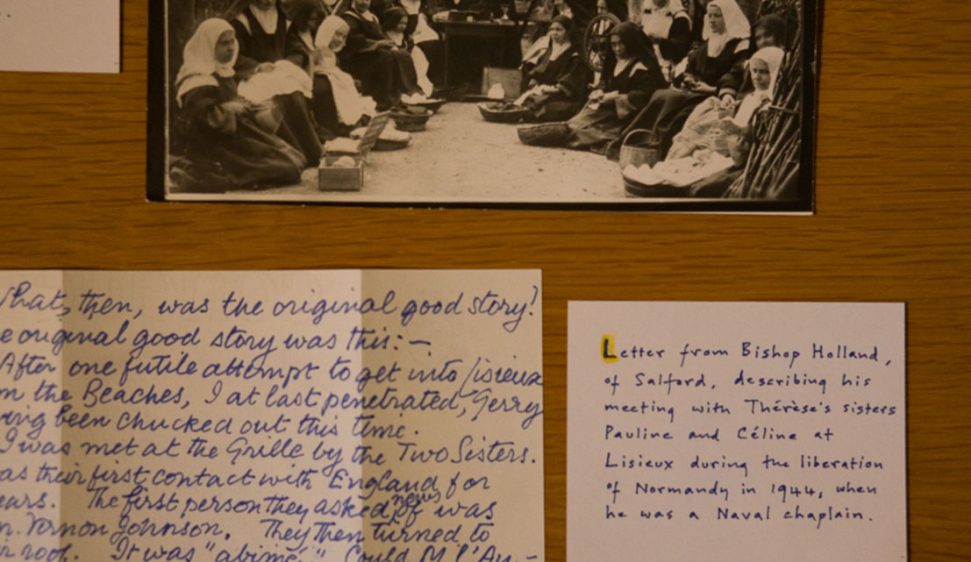 What, then, was the original good story?
e original good story was this: —
After one futile attempt to get into Lisieux
m the Beaches, I at last penetrated, Gerry
ving been chucked out this time.
I was met at the Grille by the Two Sisters.
as their first contact with England for
ears. The first person they asked news of was
n. Vernon Johnson. They then turned to
r roof. It was "abimé." Could M l'Au-
Letter from Bishop Holland,
of Salford, describing his
meeting with Thérèse's sisters
Pauline and Céline at
Lisieux during the liberation
of Normandy in 1944, when
he was a Naval chaplain.